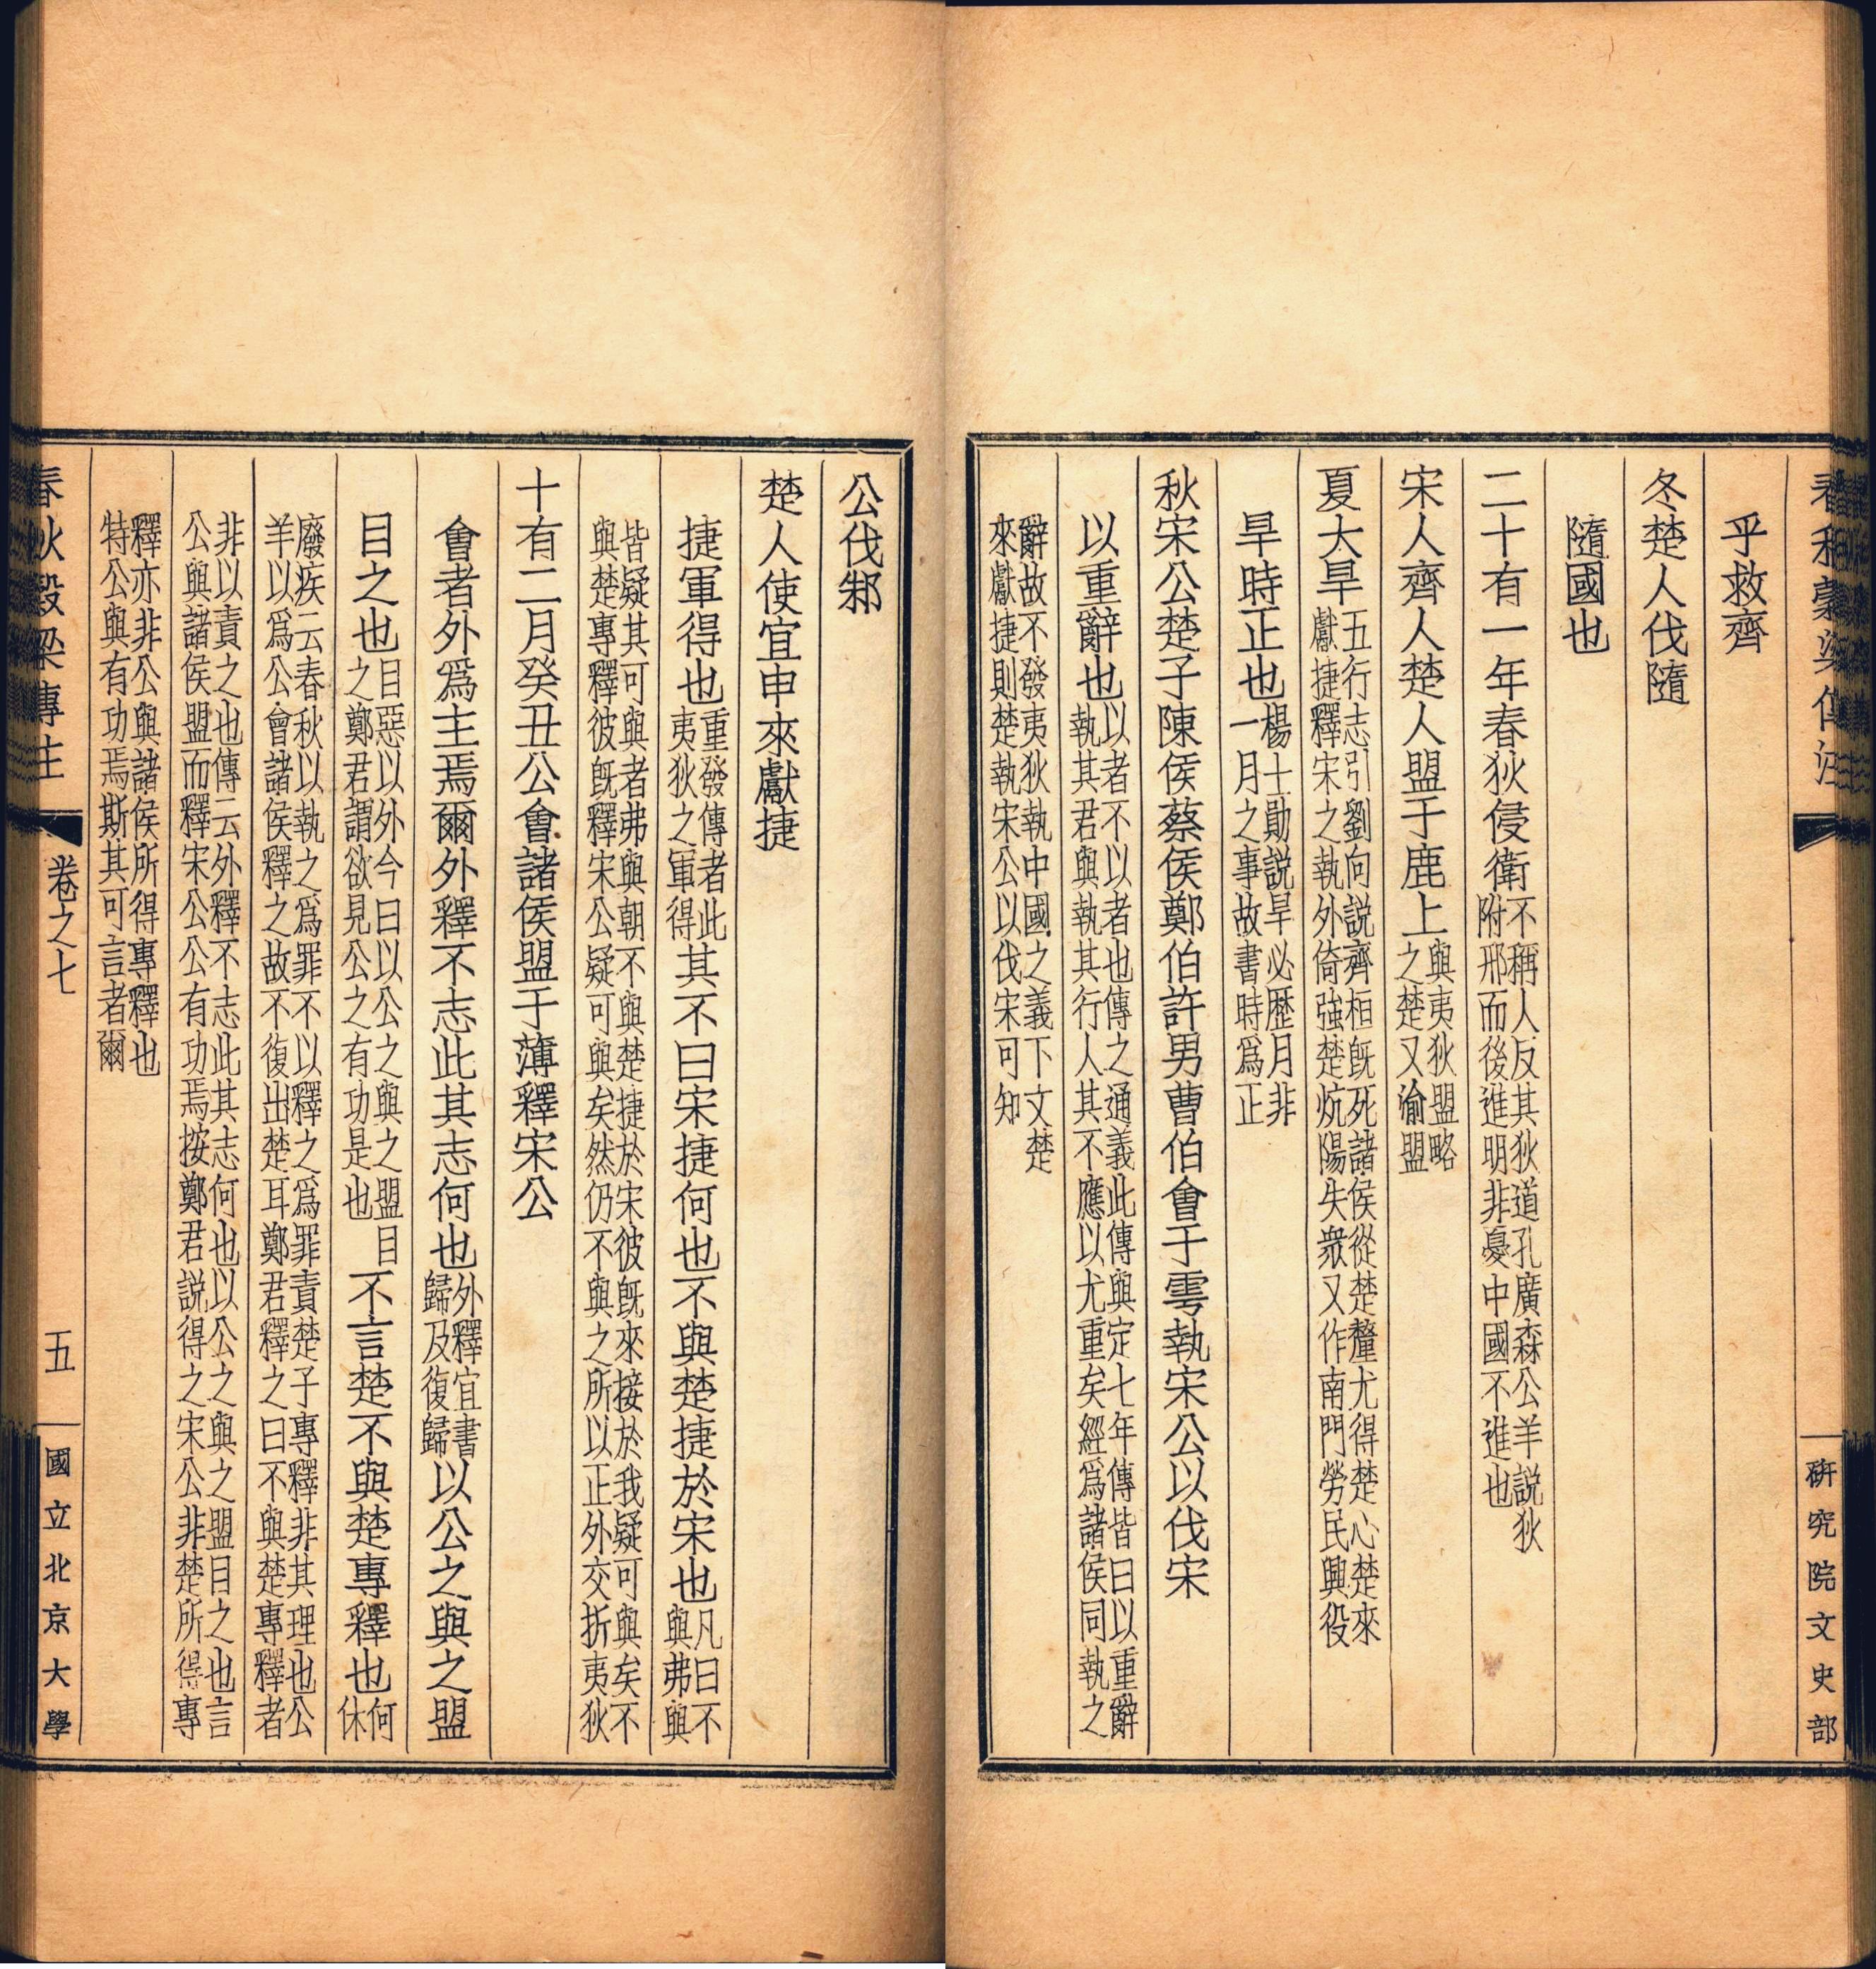 春秋穀梁傳注
研究院文史部
乎救齊
冬楚人伐隨
隨國也
二十有一年春狄侵衛不稱人反其狄道孔廣森公羊說狄
附邢而後進明非憂中國不進也
宋人齊人楚人盟于鹿上與夷狄盟略
之楚又渝盟
夏大旱五行志引劉向說齊桓旣死諸侯從楚釐尤得楚心楚來
獻捷釋宋之執外倚強楚炕陽失衆又作南門勞民興役
旱時正也楊士勛說旱必歷月非
一月之事故書時爲正
秋宋公楚子陳侯蔡侯鄭伯許男曹伯會于雩執宋公以伐宋
以重辭也以者不以者也傳之通義此傳與定七年傳皆曰以重辭
執其君與執其行人其不應以尤重矣經爲諸侯同執之
辭故不發夷狄執中國之義下文楚
來獻捷則楚執宋公以伐宋可知
公伐邾
楚人使宜申來獻捷
捷軍得也重發傳者此
夷狄之軍得其不曰宋捷何也不與楚捷於宋也凡曰不
與弗與
皆疑其可與者弗與朝不與楚捷於宋彼旣來接於我疑可與矣不
與楚專釋彼旣釋宋公疑可與矣然仍不與之所以正外交折夷狄
十有二月癸丑公會諸侯盟于薄釋宋公
會者外爲主焉爾外釋不志此其志何也外釋宜書
歸及復歸以公之與之盟
目之也目惡以外今曰以公之與之盟目
之鄭君謂欲見公之有功是也不言楚不與楚專釋也何
休
廢疾云春秋以執之爲罪不以釋之爲罪責楚子專釋非其理也公
羊以爲公會諸侯釋之故不復出楚耳鄭君釋之曰不與楚專釋者
非以責之也傳云外釋不志此其志何也以公之與之盟目之也言
公與諸侯盟而釋宋公公有功焉按鄭君說得之宋公非楚所得專
釋亦非公與諸侯所得專釋也
特公與有功焉斯其可言者爾
春秋穀梁傳注
卷之七
五
國立北京大學